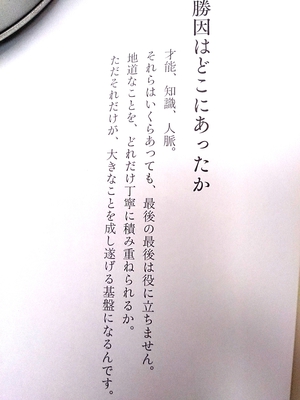 勝因はどこにあったか
才能、知識、人脈。
それらはいくらあっても、最後の最後は役に立ちません。
地道なことを、どれだけ丁寧に積み重ねられるか。
ただそれだけが、大きなことを成し遂げる基盤になるんです。